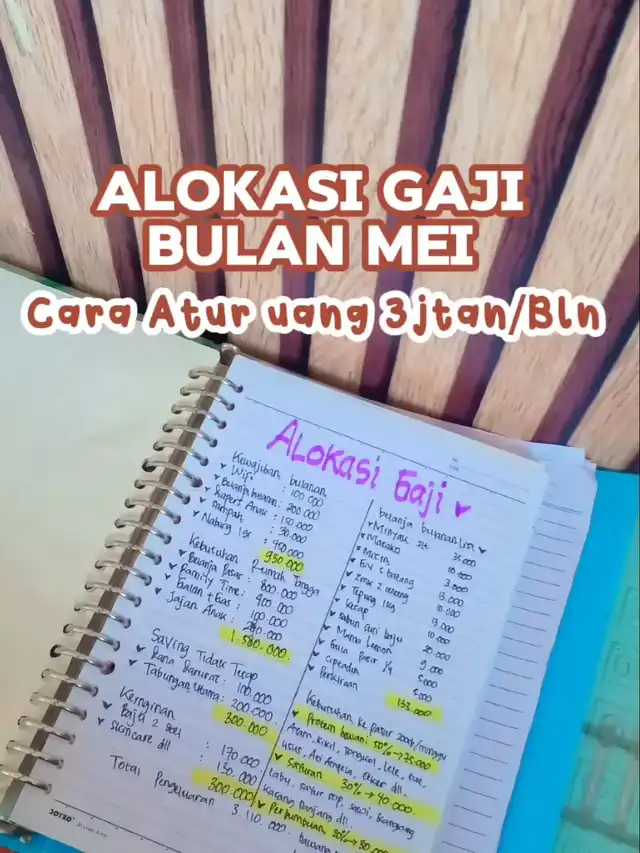 ALOKASI GAJI
BULAN MEI
Cara Atur uang 3jtan/Bln
ALOKASI Gaji
Kewajiban bulanan
Wifi : 100.000
Belanja bulanan : 200.000
: 150.000
Sampah : 30.000
Nabung : 450.000
930.000
Kebutuhan Rumah Tangga
Belanja Pasar : 800.000
Family Time : 400.000
Galon + Gas : 100.000
Jajan Anak :
1.580.000
Saving Tidak Tetap
Dana Darurat : 100.000
Tabungan Utama : 200.000
300.000
Keinginan
Baju 2 : 170.000
Skincare dll : 130.000
300.000
Total Pengeluaran 3.110.000
belanja bulanan List
Minyak 2lt 35.000
Masako 10.000
Micin 3.000
13.000
Tepung 1kg 13.000
Kecap 10.000
Sabun cuci baju 20.000
Mama Lemon 9.000
Gula Pasir 1/4 5.000
133.000
Kebutuhan ke pasar 200rb/minggu
Protein hewani 50% → 75.000
Ayam, kikil, Tongkol, Lele,
Ati Ampela, ceker dll.
Sayuran 30% → 40.000
Labu, sayur sop, sawi, kangkung
kacang panjang dll.
Perbumbuan
bawang
JOYKO